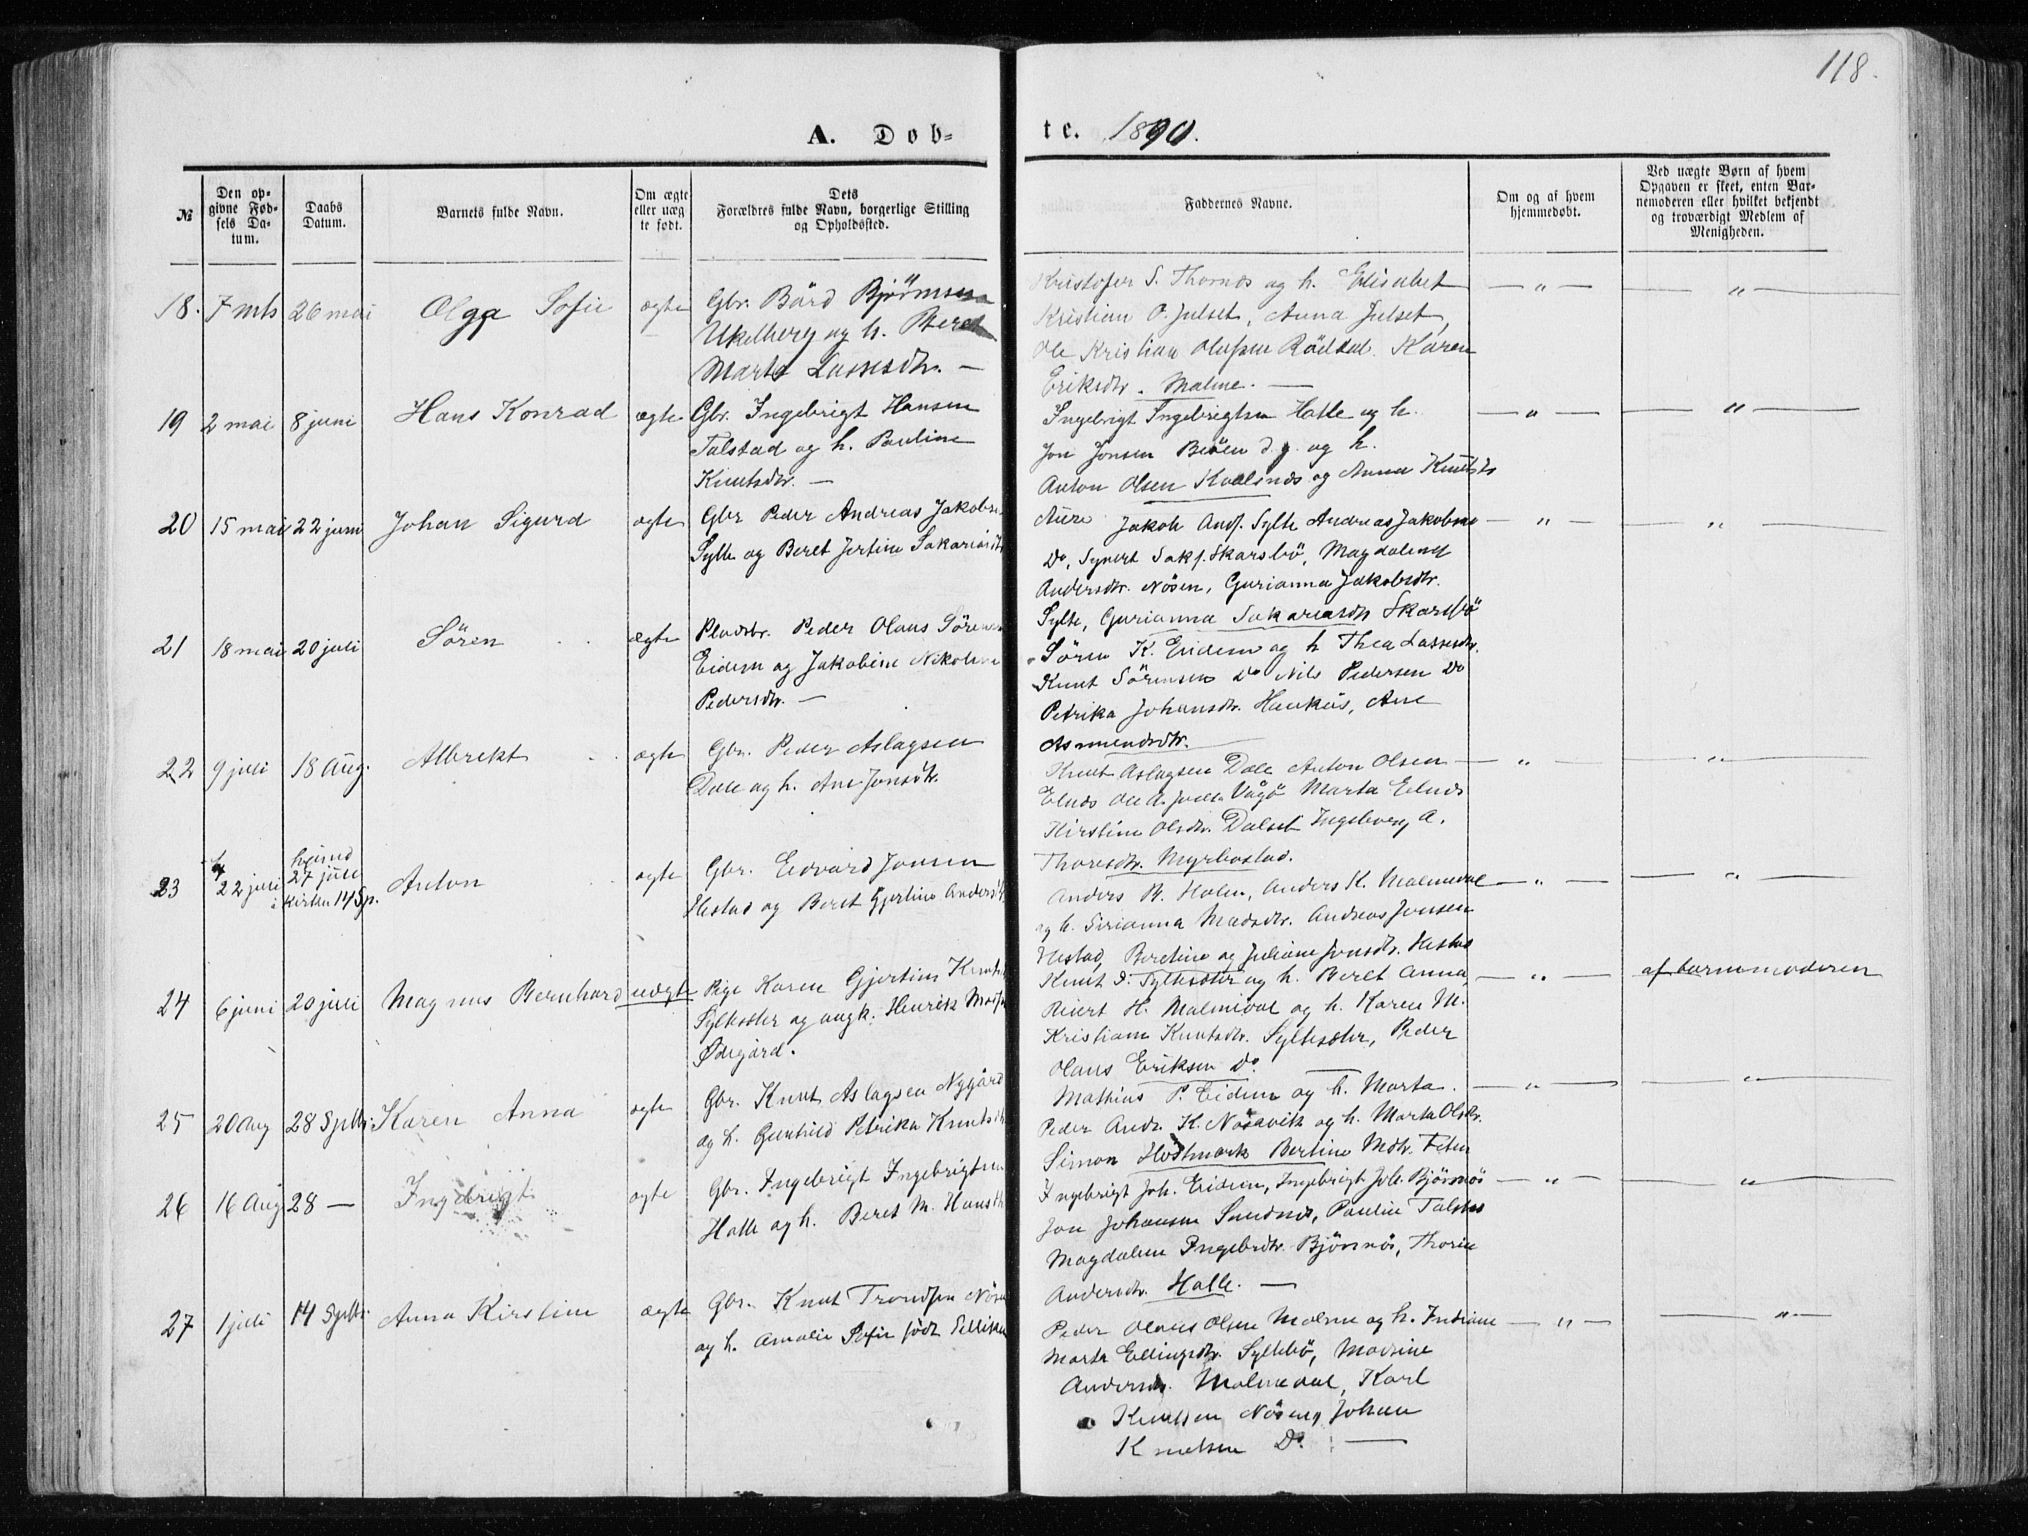 118.
A. Döb-
te. 1890.
№
Den op-
givne Fød-
sels Da-
tum.
Daabs
Datum.
Barnets fulde Navn.
Om ægte
eller uæg
te født.
Dets
Forældres fulde Navn, borgerlige Stilling
og Opholdssted.
Faddernes Navne.
Om og af hvem
hjemmedøbt.
Ved uægte Børn af hvem
Opgaven er skeet, enten Bar-
nemoderen eller hvilket bekjendt
og troværdigt Medlem af
Menigheden.
18. 7 mts 26 mai Olga Sofie ægte
Gbr. Bård Bjørnsen
Ukelberg og h. Beret
Marta Lassesdtr. —
Kristofer S. Thornes og h. Elisabet
Kristian O. Julset, Anna Julset,
Ole Kristian Olufsen Rödal. Karen
Eriksdtr. Malme. —
— " — "
19 2 mai 8 juni Hans Konrad ægte
Gbr. Ingebrigt Hansen
Talstad og h. Pauline
Knutsdtr. —
Ingebrigt Ingebrigtsen Halle og h.
Jon Jonsen Beöen d.y. og h.
Anton Olsen Kvalsnes og Anna Knutsdtr
— " — "
20 15 mai 22 juni Johan Sigurd ægte
Gbr Peder Andreas Jakobsen
Sylte og Beret Jertine Sakariasdtr
Aure Jakob Andr. Sylte Andreas Jakobsen
Do, Syvert Sak. Skarsbö, Magdalena
Andersdtr. Nösen, Gurianna Jakobsdtr.
Sylte, Gurianna Sakariasdtr Skarsbö
— " — "
21 18 mai 20 juli Sören ægte
Pladsbr. Peder Olaus Sörensen
Eidem og Jakobine Nikoline
Pedersdtr. —
Sören K. Eidem og h Thea Lassesdtr.
Knut Sörensen Do Nils Pedersen Do
Petrika Johansdtr. Haukås, Ane
Asmundsdtr.
22 9 juli 18 Aug. Albrekt ægte
Gbr. Peder Aslagsen
Dale og h. Ane Jonsdtr.
Knut Aslagsen Dale Anton Olsen
Elnes Ole A. Vågö Marta Elnes
Kirstine Olsdtr. Dalset Ingeborg A.
Thoresdtr. Myrbostad.
— " — "
23 22 juli hjemd
27 juli
i Kirken 14 Sp. Anton ægte
Gbr. Edvard Jonsen
Hestad og Beret Gjertine Andersdtr
Anders B. Holm, Anders K. Malmedal
og h. Sirianna Madsdtr. Andreas Jonsen
Hestad, Beretine og Juliane Jonsdtr. Hestad
— " — "
24 6 juni 20 juli Magnus Bernhard uægte
Pige Karen Gjertine Knutsdtr
Syltesæter og ungk. Henrik
Ødegård.
Knut I. Syltesæter og h. Beret Anna,
Reiert H. Malmedal og h. Karen M.
Kristiane Knutsdtr. Syltesæter, Peder
Olaus Eriksen Do.
— " — af barnemoderen
25 20 Aug 28 Sptbr. Karen Anna ægte
Gbr. Knut Aslagsen Nygård
og h. Gunhild Petrika Knutsdtr
Mathias P. Eidem og h. Marta.
Peder Andr. K. Nåsavik og h. Marta Olsdtr.
Simon Hostmark Bertine Mdtr. Feten
— " — "
26 16 Aug 28 — Ingebrigt ægte
Gbr. Ingebrigt Ingebrigtsen
Halle og h. Beret M. Hansdtr
Ingebrigt Joh. Eidem, Ingebrigt Joh. Bjørnøs
Jon Johansen Sandnes, Pauline Talstad
Magdalena Ingebrdtr. Bjönnös, Thorine
Andersdtr. Halle. —
— " — "
27 1 juli 14 Sptbr. Anna Kirstine ægte
Gbr. Knut Trondsen Nösen
og h. Amalie Sofie født
Peder Olaus Olsen Malme og h. Indiane
Marta Ellingsdtr. Syltebö, Madsine
Andersdtr. Malmedal, Karl
Knutsen Nösen, Johan
Knutsen Do. —
— " — "